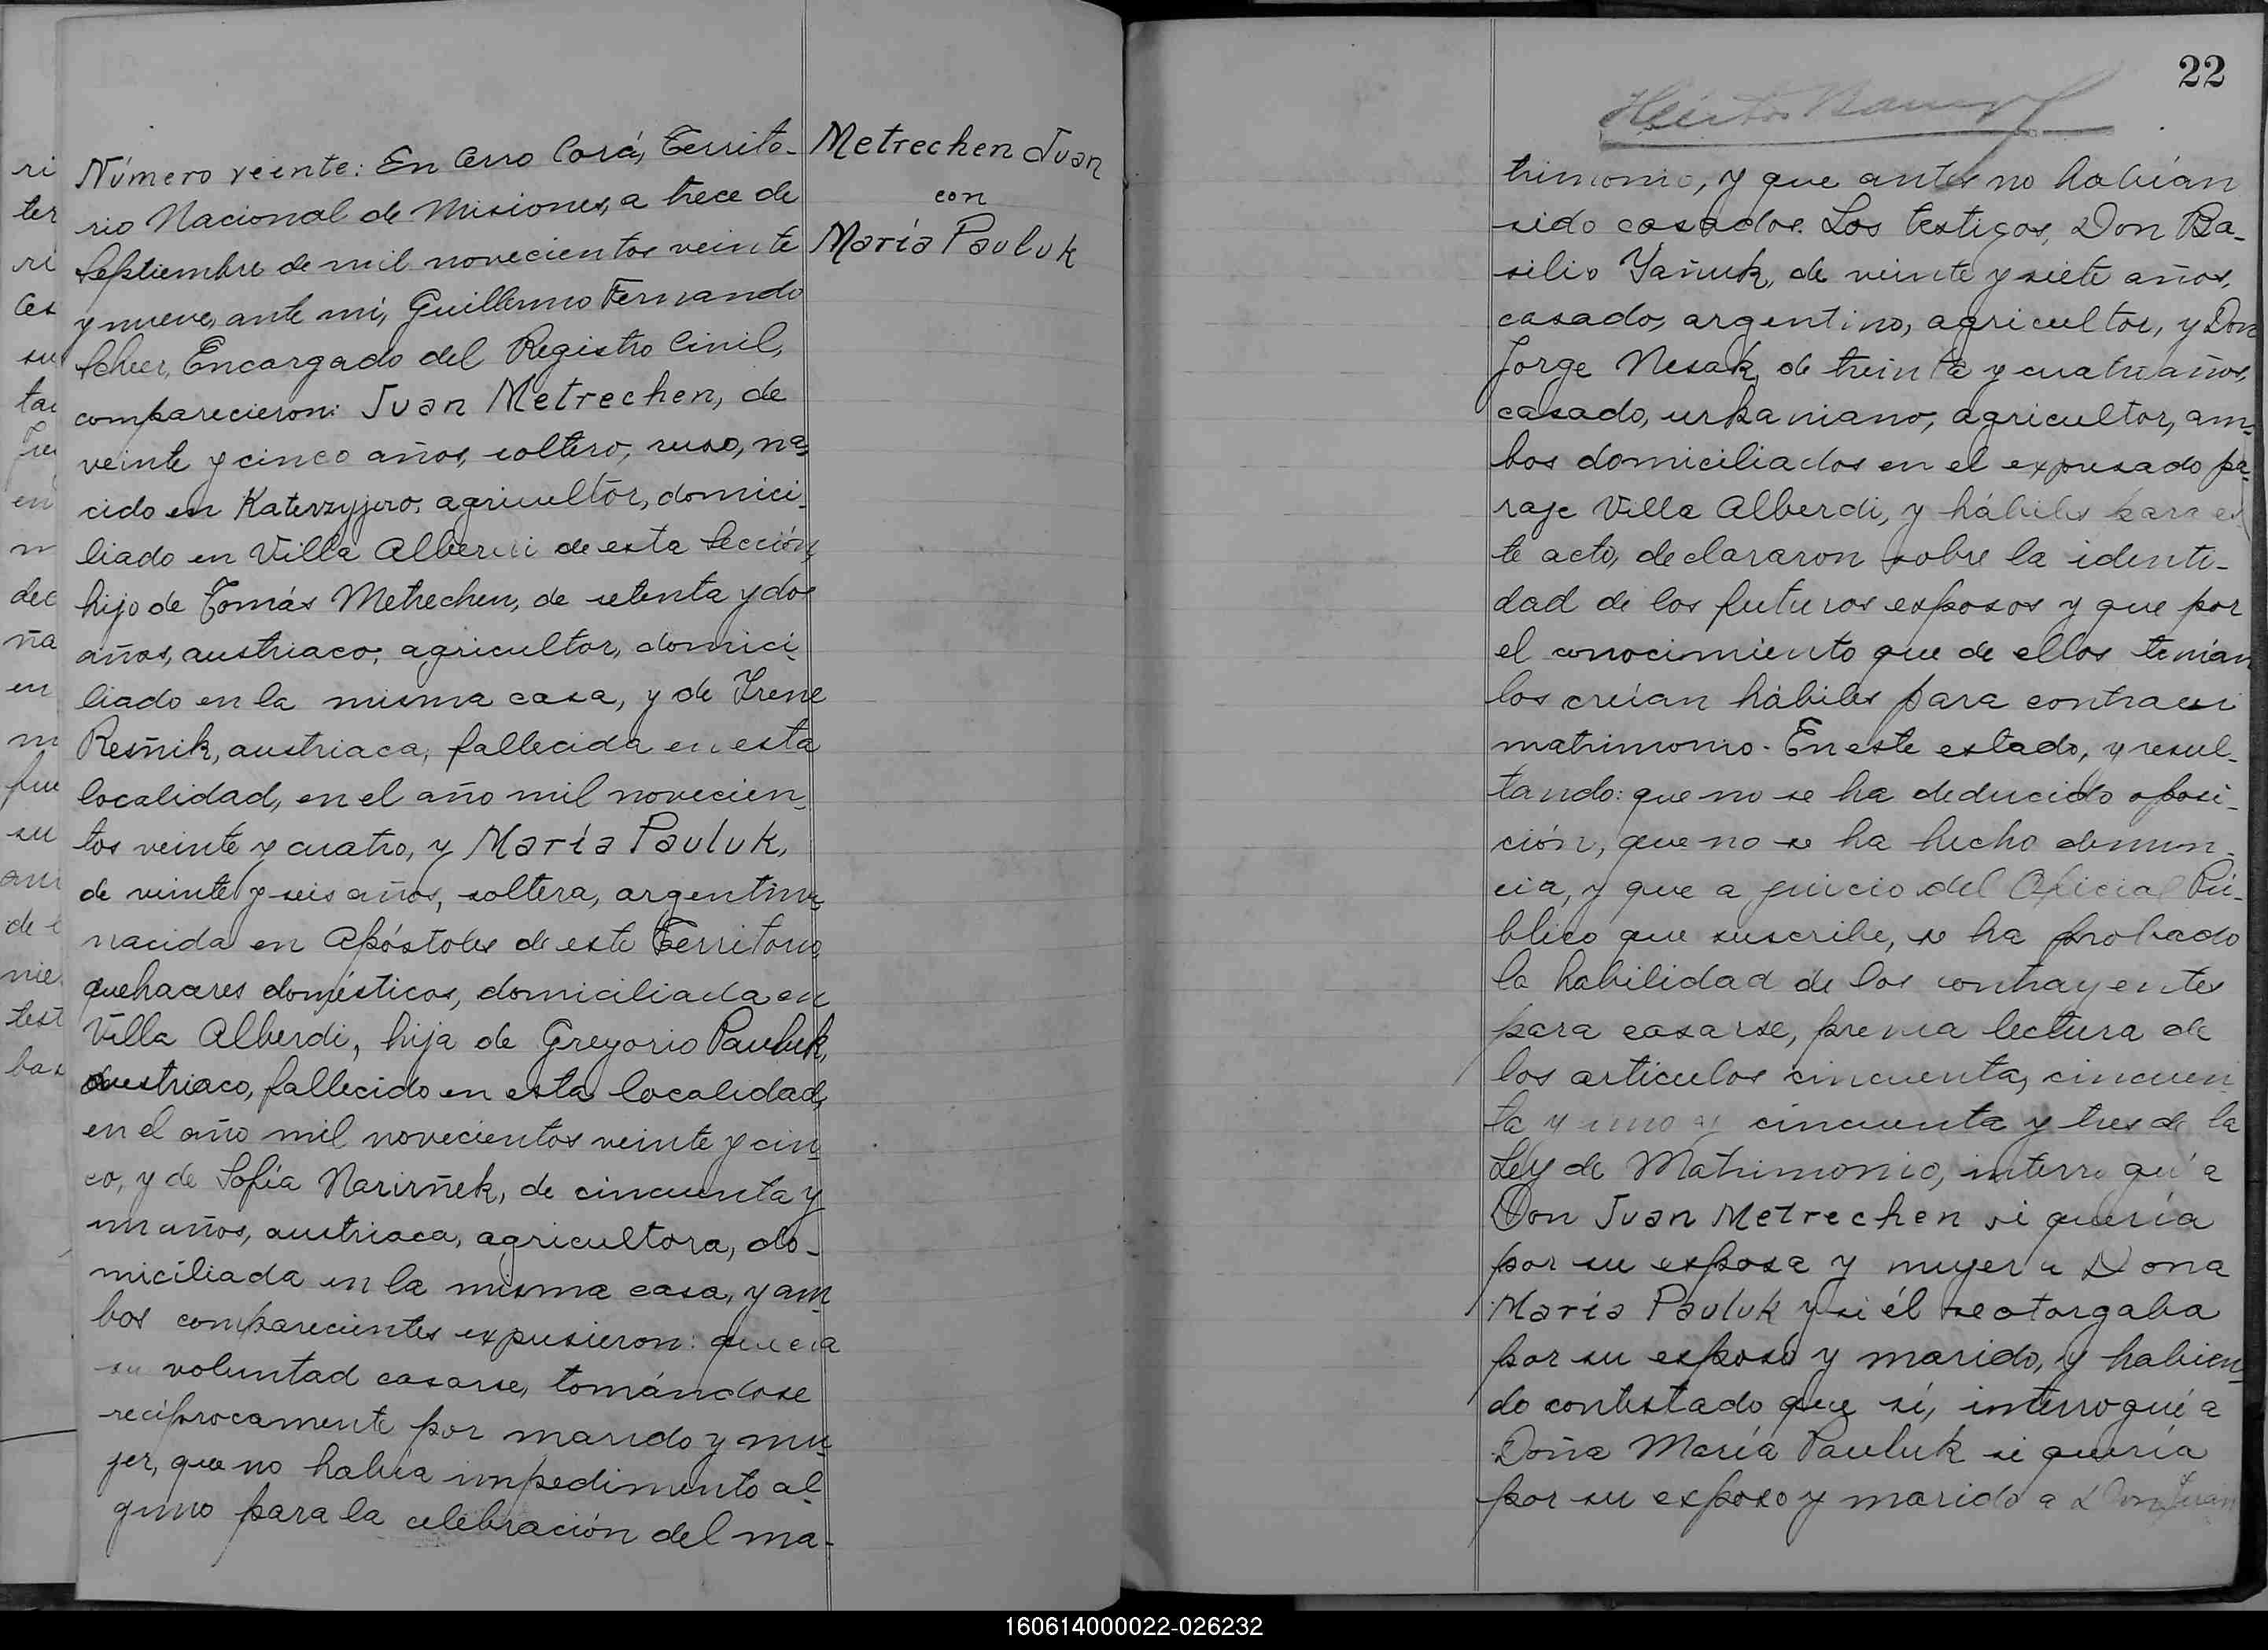 Número veinte: En Cerro Corá, Territo-
rio Nacional de Misiones, a trece de
Septiembre de mil novecientos veinte
y nueve, ante mi, Guillermo Fernando
Scheer, Encargado del Registro Civil,
comparecieron: Juan Metrechen, de
veinte y cinco años, soltero, ruso, na-
cido en agricultor, domici-
liado en Villa Alberdi de esta Sección,
hijo de Tomás Metrechen, de setenta y dos
años, austriaco, agricultor, domici-
liado en la misma casa, y de Irene
Resñik, austriaca, fallecida en esta
localidad, en el año mil novecien-
tos veinte y cuatro, y María Pauluk,
de veinte y seis años, soltera, argentina,
nacida en Apóstoles de este Territorio,
quehaceres domésticos, domiciliada en
Villa Alberdi, hija de Gregorio Pauluk,
austriaco, fallecido en esta localidad,
en el año mil novecientos veinte y cin-
co, y de Sofía Narirñek, de cincuenta y
un años, austriaca, agricultora, do-
miciliada en la misma casa, y am-
bos comparecientes expusieron: que era
su voluntad casarse, tomándose
recíprocamente por marido y mu-
jer, que no había impedimento al-
guno para la celebración del ma-
Metrechen Juan
con
María Pauluk
22
trimonio, y que antes no habían
sido casados. Los testigos, Don Ba-
silio Yañuk, de veinte y siete años,
casado, argentino, agricultor, y Don
Jorge Nesak, de treinta y cuatro años,
casado, urkaniano, agricultor, am-
bos domiciliados en el expresado pa-
raje Villa Alberdi, y hábiles para es
te acto, declararon sobre la identi-
dad de los futuros esposos y que por
el conocimiento que de ellos tenían
los creían hábiles para contraer
matrimonio. En este estado, y resul-
tando: que no se ha deducido oposi-
ción, que no se ha hecho denun-
cia, y que a juicio del Oficial Pú-
blico que suscribe, se ha probado
la habilidad de los contrayentes
para casarse, previa lectura de
los artículos cincuenta, cincuen
ta y uno y cincuenta y tres de la
Ley de Matrimonio, interrogué a
Don Juan Metrechen si quería
por su esposa y mujer a Dona
María Pauluk y si él se otorgaba
por su esposo y marido, y habien-
do contestado que sí, interrogué a
Doña María Pauluk si quería
por su esposo y marido a Don Juan
160614000022-026232